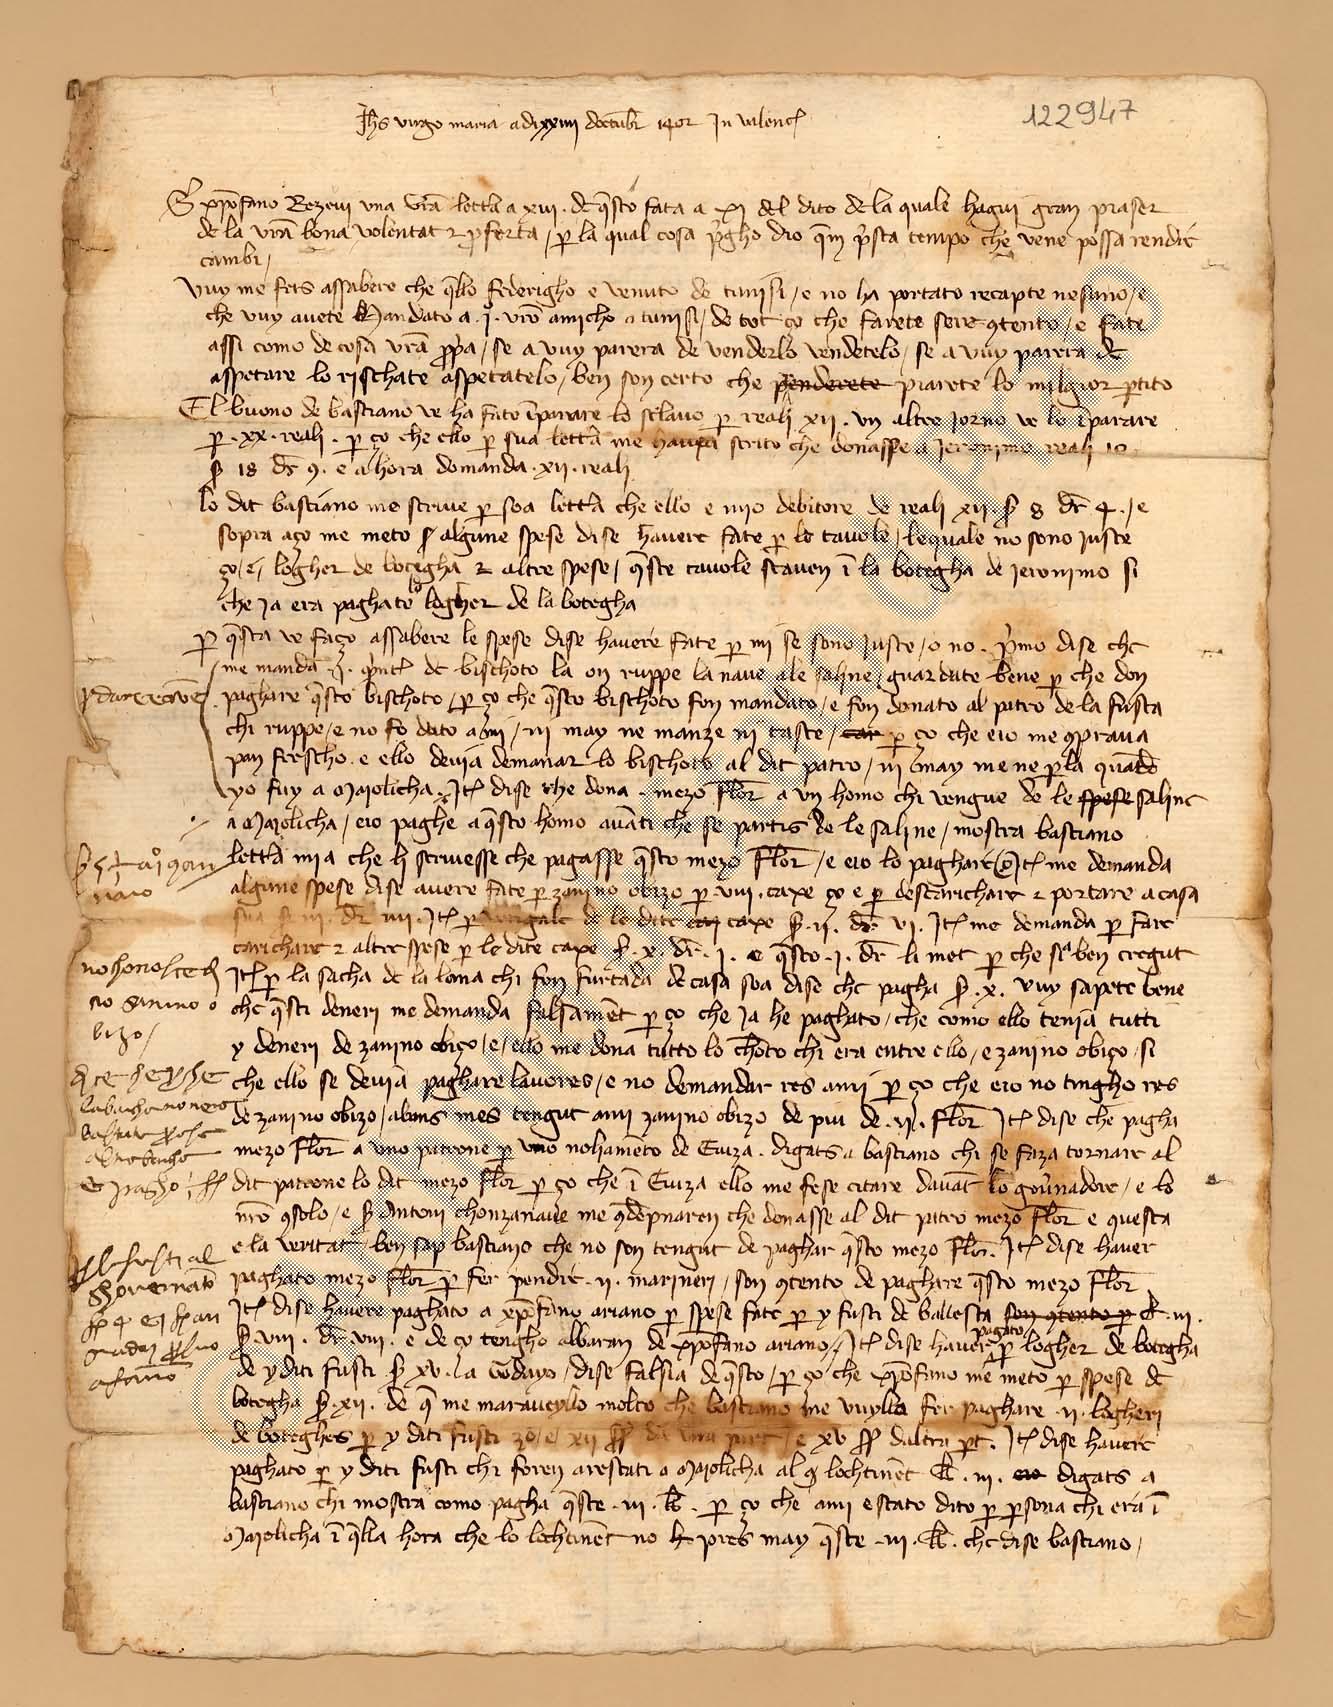 122947
Jhs virgo maria a di xxiiii doctubr 1402 Jn valenc
S xpofano Rezevi una vra lettra a xvii · de qsto fata a xi del dito de la quale hagui gran plaser
de la vra bona volentat & pferta / p la qual cosa pgho dio qm psta tempo che vene possa rendir
cambi /
Vuy me fets assabere che qllo federigho e venuto de tunisi / e no ha portato recapte nesuno / e
che vuy avete Mandato a · j · vro amicho a tunisi / de tot ço che farete sere 9tento / e fate
assi como de cosa vra ppa / se a vuy parera de venderlo vendetelo / se a vuy parera de
aspetare lo rischate aspetatelo / ben son certo che penderete piarete lo milgior ptito
El buono de bastiano ve ha fato iparare lo sclavo p reali xii · un altro jorno ve lo iparare
p · xx · reali · p ço che ello p sua lettra me havia scrito che donasse a jeronimo reali 10
S 18 dr 9 · e a lhora domanda · xii · reali
lo dit bastiano me scrive p soa lettra che ello e mjo debitore de reali xii S 8 dr 4 · / e
sopra aço me meto S algune spese dise havere fate p le tavole / lequale no sono juste
ço / e / logher de botegha & altre spese / qste tavole staven i la botegha de jeronimo si
che ja era paghato lo logher de la botegha
p qsta ve faço assabere le spese dise havere fate p mi se sono juste / o no · pmo dise che
me manda · j · qint de bischoto la on ruppe la nave a le saline / guardate bene p che don
paghare qsto bischoto / p ço che qsto bischoto fon mandato / e fon donato al patro de la fusta
chi ruppe / e no fo dato a mi / ni may ne manze ni taste / car p ço che eio me 9prava
pan frescho · e ello devia demanar lo bischoto al dit patro / ni may me ne parla quado
yo fuy a Maiolicha · Jt dise che dona · mezo flor a un homo chi vengue de le spese saline
a Maiolicha / eio paghe aqsto homo avanti che se partis de le saline / mostra bastiano
lettra mia che li scrivesse che pagasse qsto mezo flor / e eio lo paghare Jt me demanda
algune spese dise avere fate p zanino obizo p · viii · caxe ço e p descarichare & portare a casa
sua S iii · dr iiii · Jt p vetigale de le dite caxe S · ii · dr vi · Jt me demanda p fare
carichare & altre spese p le dite caxe S · x · dr · j · e qsto · j · dr li met p che sia ben cregut
Jt p la sacha de la lana chi fon furtada de casa soa dise che pagha S · x · vuy sapete bene
che qsti deneri me demanda falsament p ço che ja he paghato / che como ello tenia tutti
y deneri de zanino obiço / e / ello me dona tutto lo choto chi era entre ello / e zanino obiço / si
che ello se devia paghare lavores / e no demandar res amii p ço che eio no tingho res
de zanino obizo / abans mes tengut ami zanino obizo de piu de · vi · flor Jt dise che pagha
mezo flor a uno patrone p uno nohameto de Eviza · digats a bastiano chi se faza tornare al
dit patrone lo dit mezo flor p ço che i Eviza ello me fese citare davat lo govnadore / e lo
nro 9solo / e S Antoni chonzanave me 9depnaren che donasse al dit patro mezo flor e questa
e la veritat / ben sap bastiano che no son tengut de paghar qsto mezo flor · Jt dise haver
paghato mezo flor p fer pendre · ii · marineri / son 9tento de paghare qsto mezo flor
Jt dise havere paghato a xpofano ariano p spese fate p y fusti de ballesta son 9tento p L · iii ·
S viii · dr viii · e de ço tengho albaran de xpofano ariano / Jt dise haver pagato p logher de botegha
de y diti fusti S xv · la dayo / dise falsia de qsto / p ço che xpofano me meto p spese de
botegha S · xii · de q me maraveyllo molto che bastiano me vuylla fer paghare · ii · logheri
de boteghes p y diti fusti zo / e / xii S da una part / e xv S daltra pt · Jt dise havere
paghato p y diti fusti chi foren arestati a Maiolicha al lochtinet L · iii · eio digats a
bastiano chi mostra como pagha qste · iii · L · p ço che ami e stato dito p psona chi era i
Maiolicha i qlla hora che lo lochtinet no h pres may qste · iii · L · che dise bastiano /
no chonoscie
zanino o
bizo /
e pagho